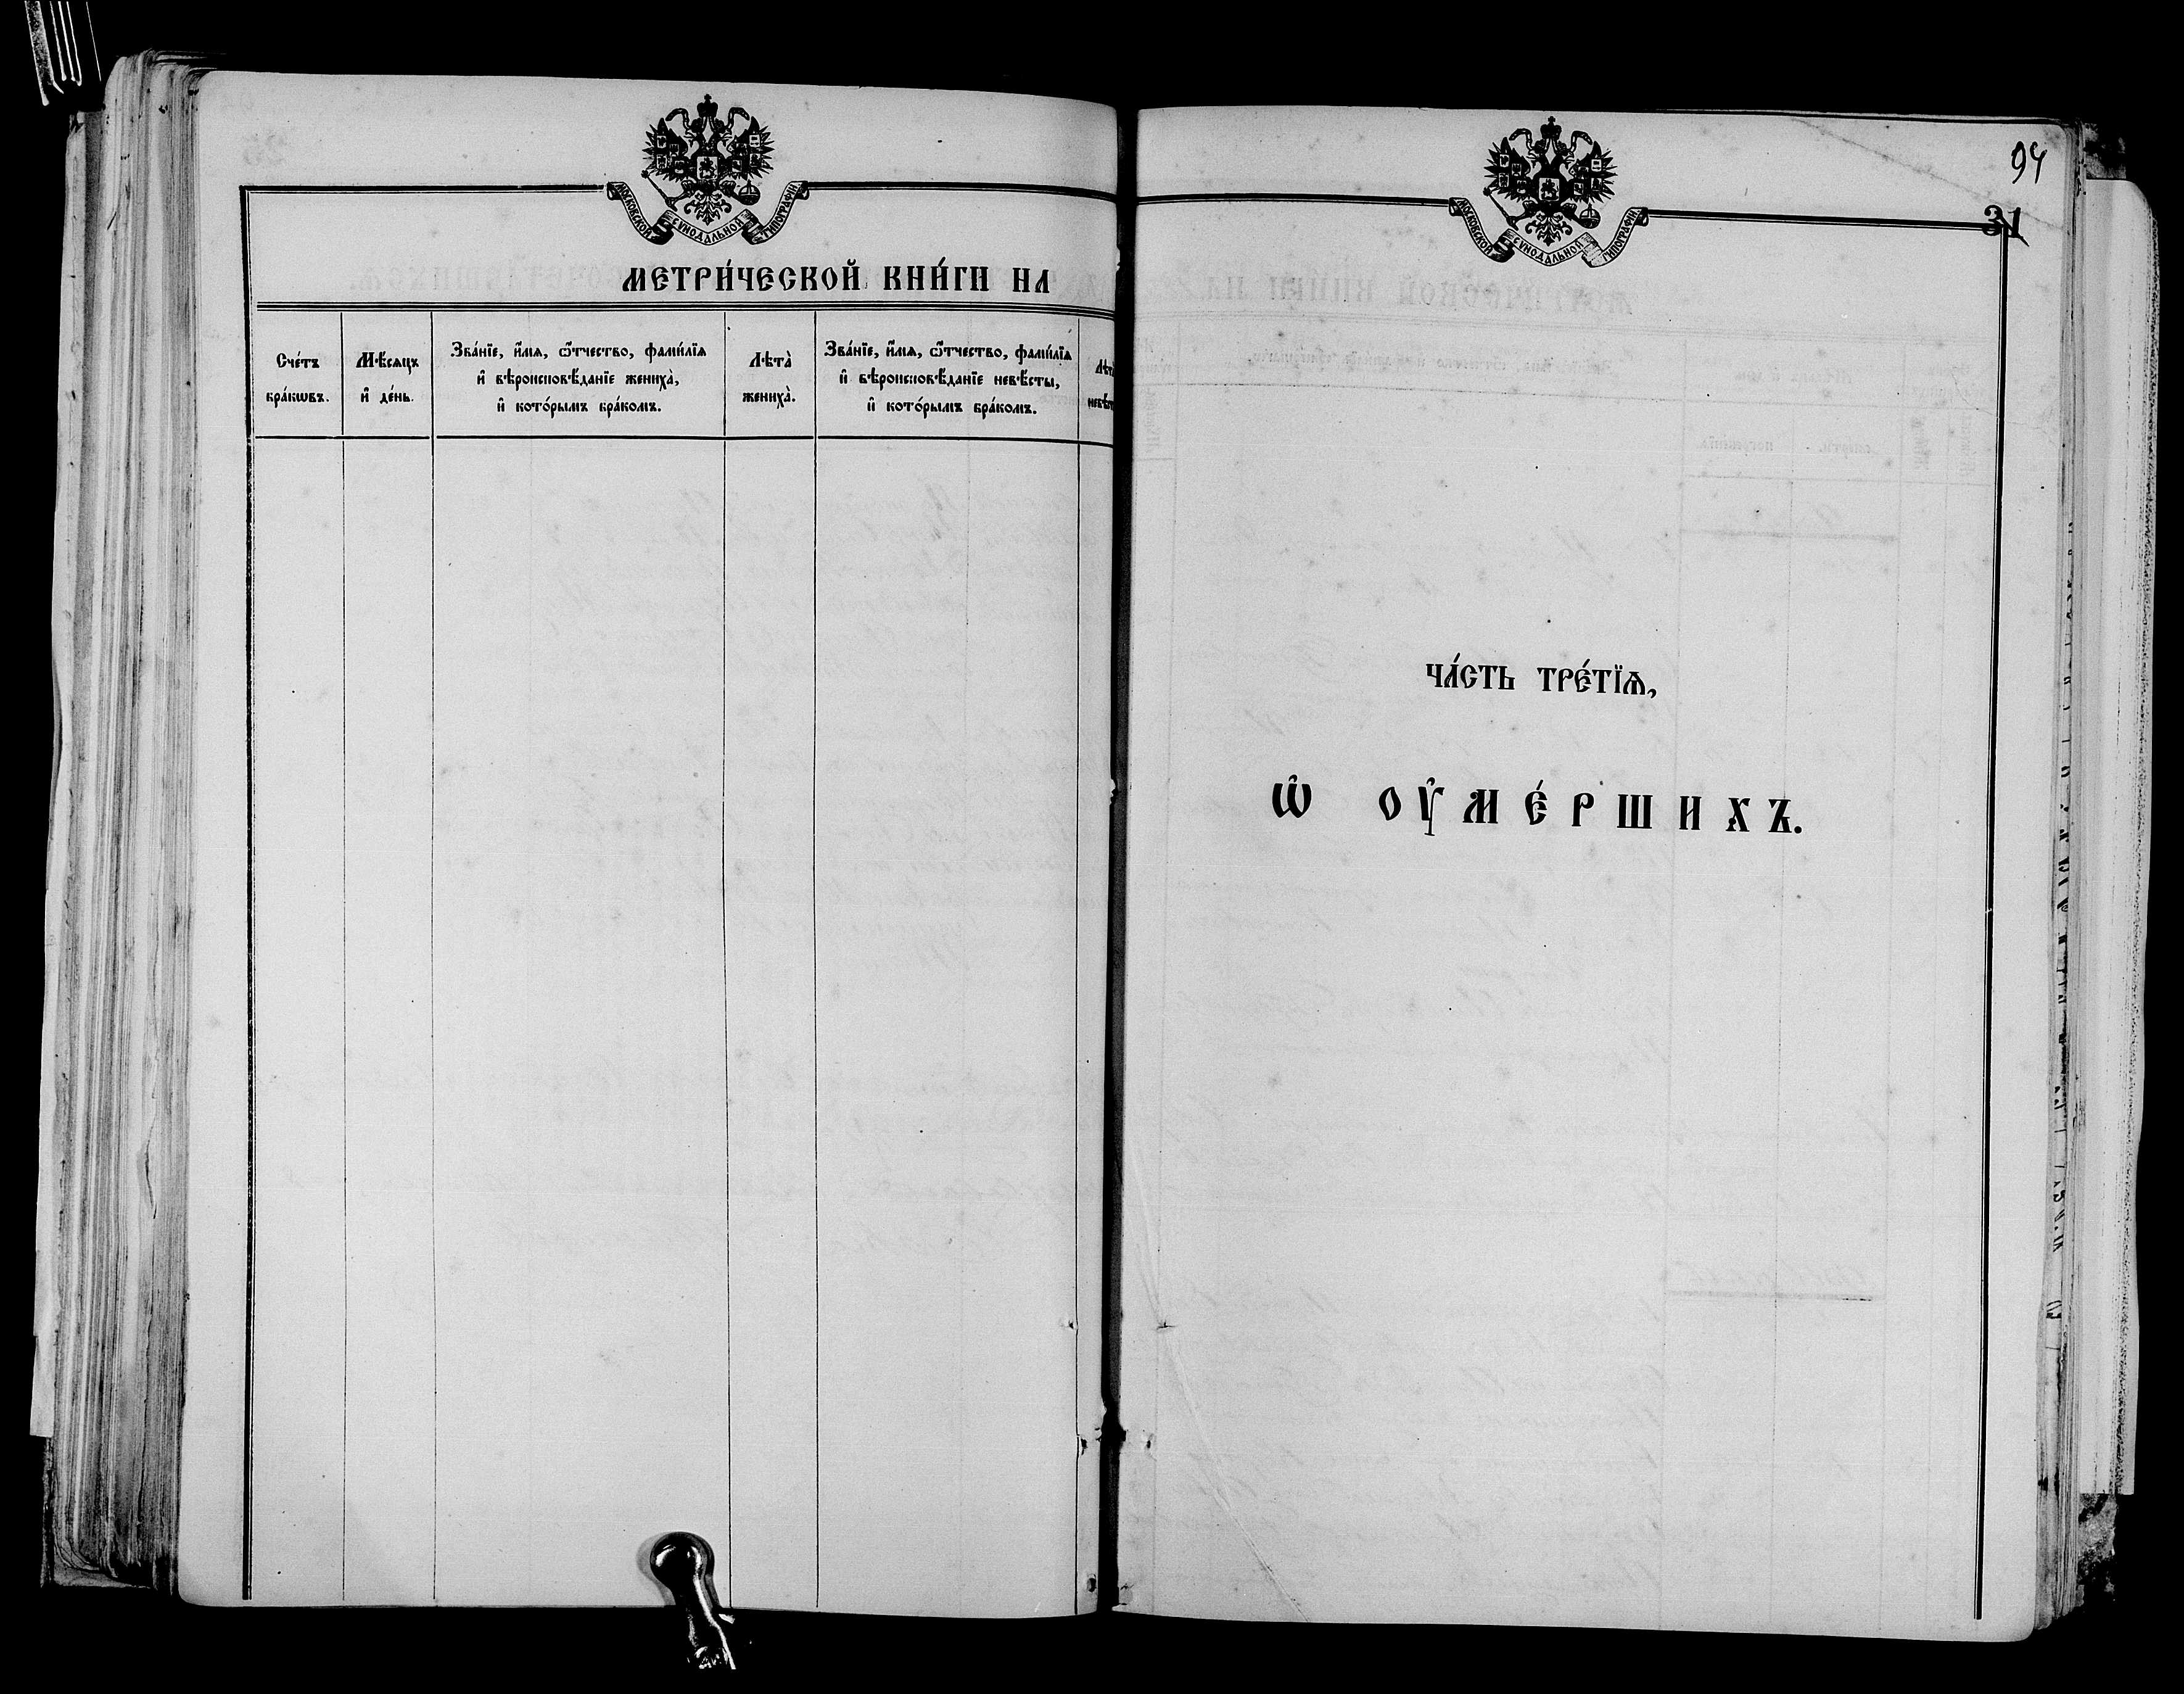 МОСКОВСКОЙ СѴНОДАЛЬНОЙ ТИПОГРАФІИ
МЕТРИ́ЧЕСКОЙ КНИ́ГИ НА
Сче́тъ
бра́кѡвъ.
Мѣ́сяцъ
и҆ де́нь.
Зва́нїе, и҆́мѧ, ѻ҆́тчество, фамі́лїѧ
и҆ вѣроисповѣ́данїе жениха̀,
и҆ кото́рымъ бра́комъ.
Лѣта̀
жениха̀.
Зва́нїе, и҆́мѧ, ѻ҆́тчество, фамі́лїѧ
и҆ вѣроисповѣ́данїе невѣ́сты,
и҆ кото́рымъ бра́комъ.
94
31
МОСКОВСКОЙ СѴНОДАЛЬНОЙ ТИПОГРАФІИ
ЧА́СТЬ ТРЕ́ТЇѦ,
Ѡ҆ ОУ҆МЕ́РШИХЪ.